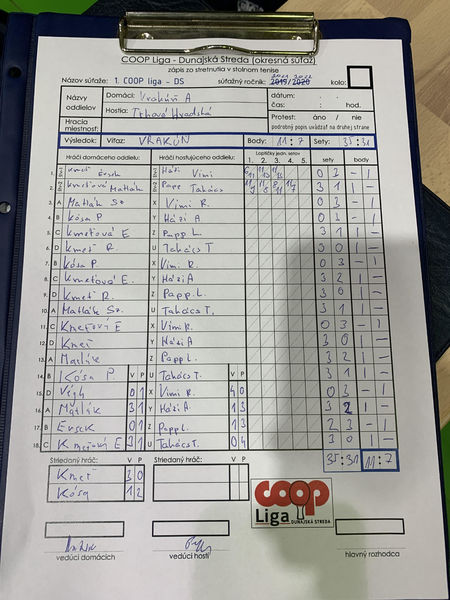 COOP Liga - Dunajská Streda (okresná súťaž)
zápis zo stretnutia v stolnom tenise
Názov súťaže: 1. COOP liga - DS súťažný ročník: 2019/2020 kolo:
Názvy oddielov
Domáci: Vrakúň A dátum:
Hostia: Trhová Hradská čas: : hod.
Hracia miestnosť: Protest: áno / nie
podrobný popis uvádzať na druhej strane
Výsledok: Víťaz: VRAKÚN Body: 11:7 Sety: 35:31
Hráči domáceho oddielu: Hráči hosťujúceho oddielu: Loptičky jedn. setov sety body
1. 2. 3. 4. 5.
1. Kmeť Ersek Házi Vimi 0 3 - 1
2. Kmeťová Matlák Papp Takács 3 1 1 -
3. A Matlák Sz. X Vimi R. 0 3 - 1
4. B Kósa P. Y Házi A 0 3 - 1
5. C Kmeťová E Z Papp L. 3 1 1 -
6. D Kmeť R. U Takács T 3 0 1 -
7. B Kósa P. X Vimi R. 0 3 - 1
8. C Kmeťová E. Y Házi A 3 2 1 -
9. D Kmeť R. Z Papp L. 3 0 1 -
10. A Matlák Sz. U Takács T. 3 1 1 -
11. C Kmeťová E X Vimi R. 0 3 - 1
12. D Kmeť Y Házi A 3 0 1 -
13. A Matlák Z Papp L. 3 2 1 -
14. B Kósa P. V P U Takács T. V P 3 1 1 -
15. D Végh 0 1 X Vimi R. 4 0 0 3 - 1
16. A Matlák 3 1 Y Házi A. 1 3 3 2 1 -
17. B Ersek 0 1 Z Papp L. 1 3 2 3 - 1
18. C Kmeťová E 3 1 U Takács T. 0 4 3 0 1 -
Striedaný hráč: V P Striedaný hráč: V P 35:31 11:7
Kmeť 3 0
Kósa 1 2
coop
Liga
DUNAJSKÁ STREDA
vedúci domácich vedúci hostí hlavný rozhodca